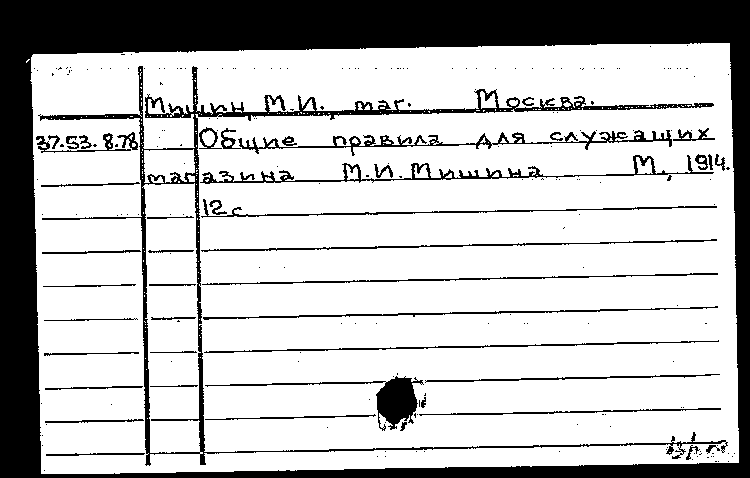 Мишин, М.И., маг. Москва.
37.53.8.78 Общие правила для служащих
магазина М.И.Мишина М., 1914.
12с